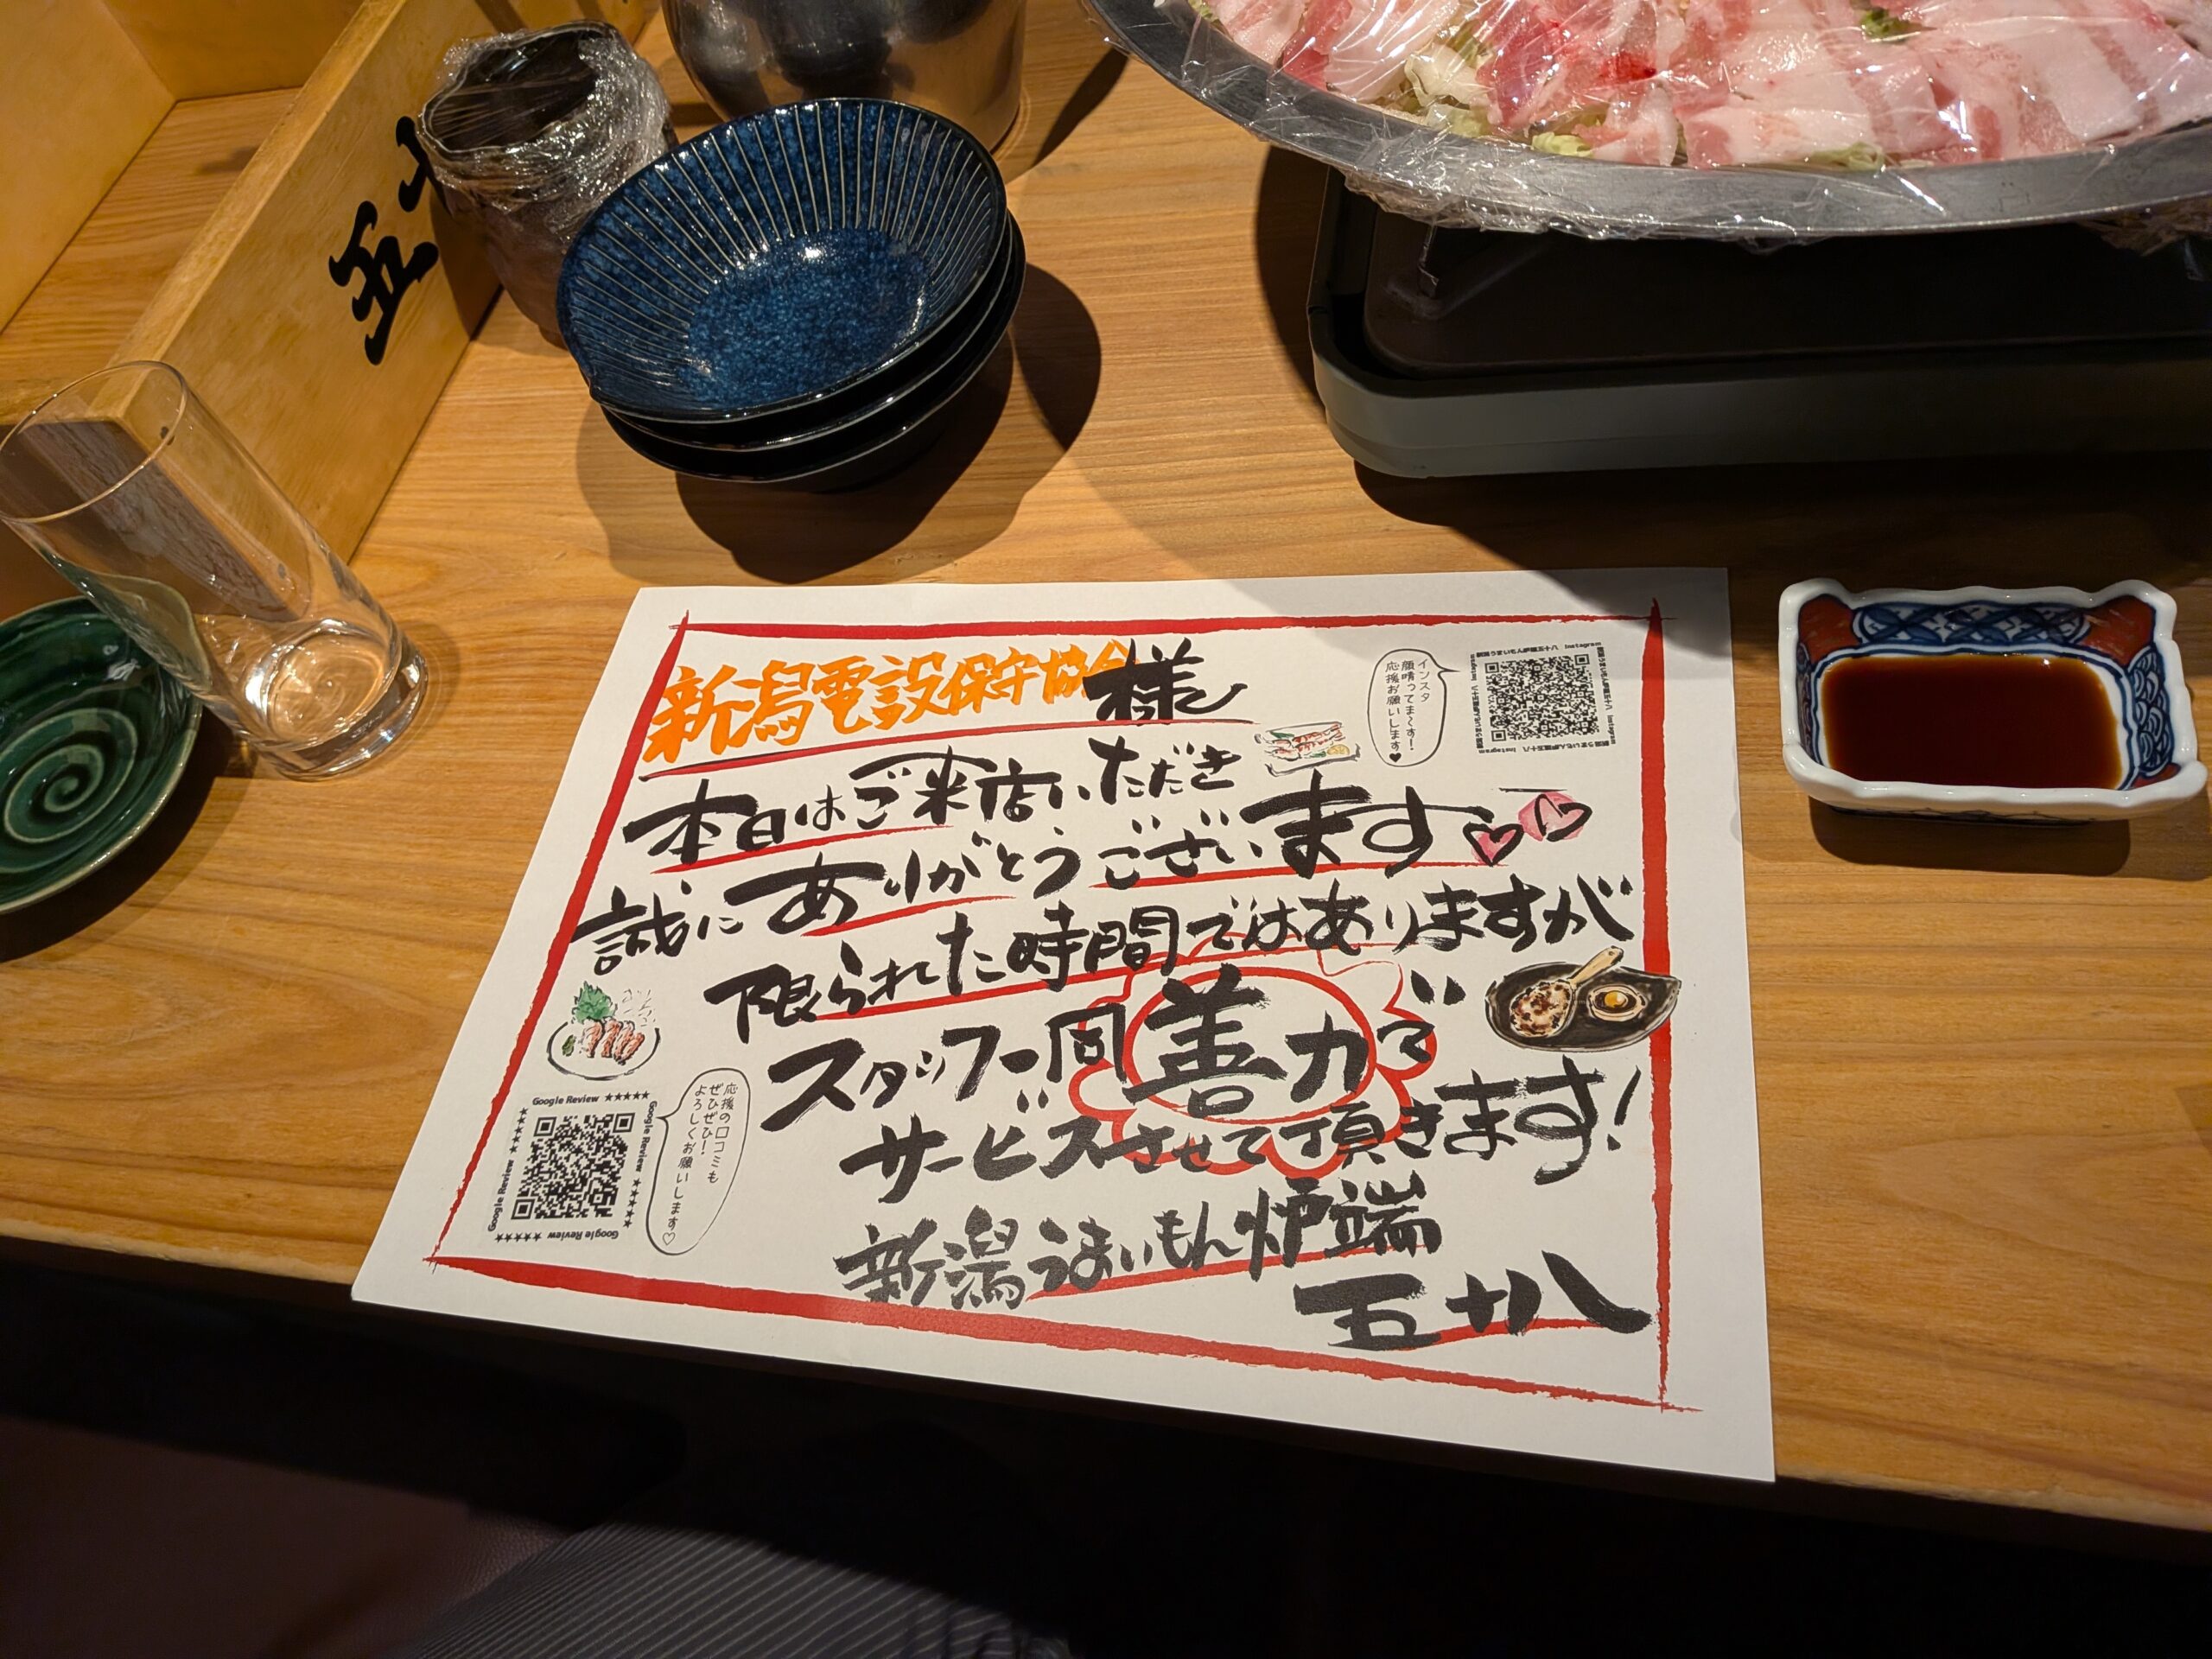 新潟電設保守協会様
本日はご来店いただき
誠にありがとうございます
限られた時間ではありますが
スタッフ一同善力で
サービスさせて頂きます!
新潟うまいもん炉端
五十八
インスタ
頑張ってま〜す!
応援お願いします♥
Instagram
Instagram
Instagram
Instagram
応援の口コミも
ぜひぜひ!
よろしくお願いします♡
Google Review ★★★★★
Google Review ★★★★★
Google Review ★★★★★
Google Review ★★★★★
五十